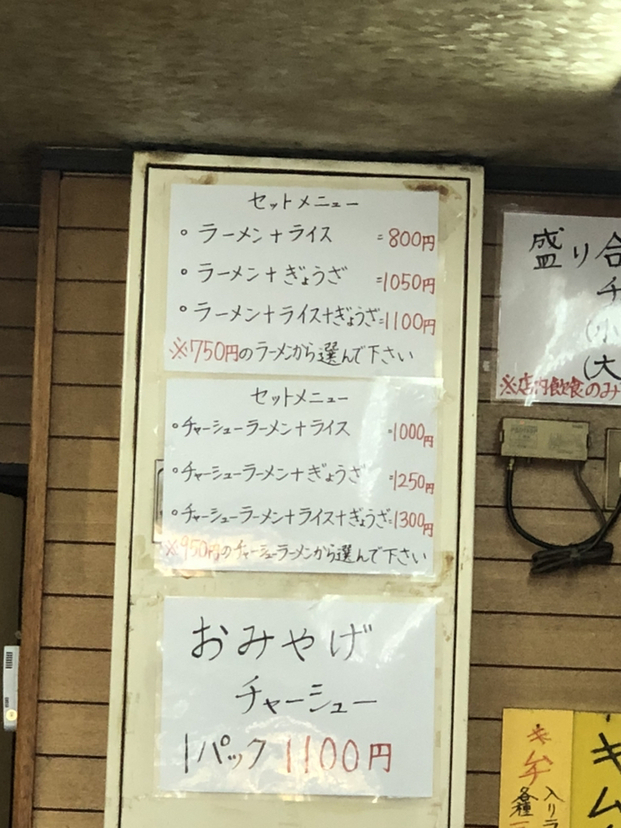 セットメニュー
・ラーメン+ライス =800円
・ラーメン+ぎょうざ =1050円
・ラーメン+ライス+ぎょうざ=1100円
※750円のラーメンから選んで下さい
セットメニュー
・チャーシューラーメン+ライス =1000円
・チャーシューラーメン+ぎょうざ =1250円
・チャーシューラーメン+ライス+ぎょうざ=1300円
※950円のチャーシューラーメンから選んで下さい
おみやげ
チャーシュー
1パック 1100円
盛り合
チ
(小
(大
※店内飲食のみ
キム
各種
入りラ
キム